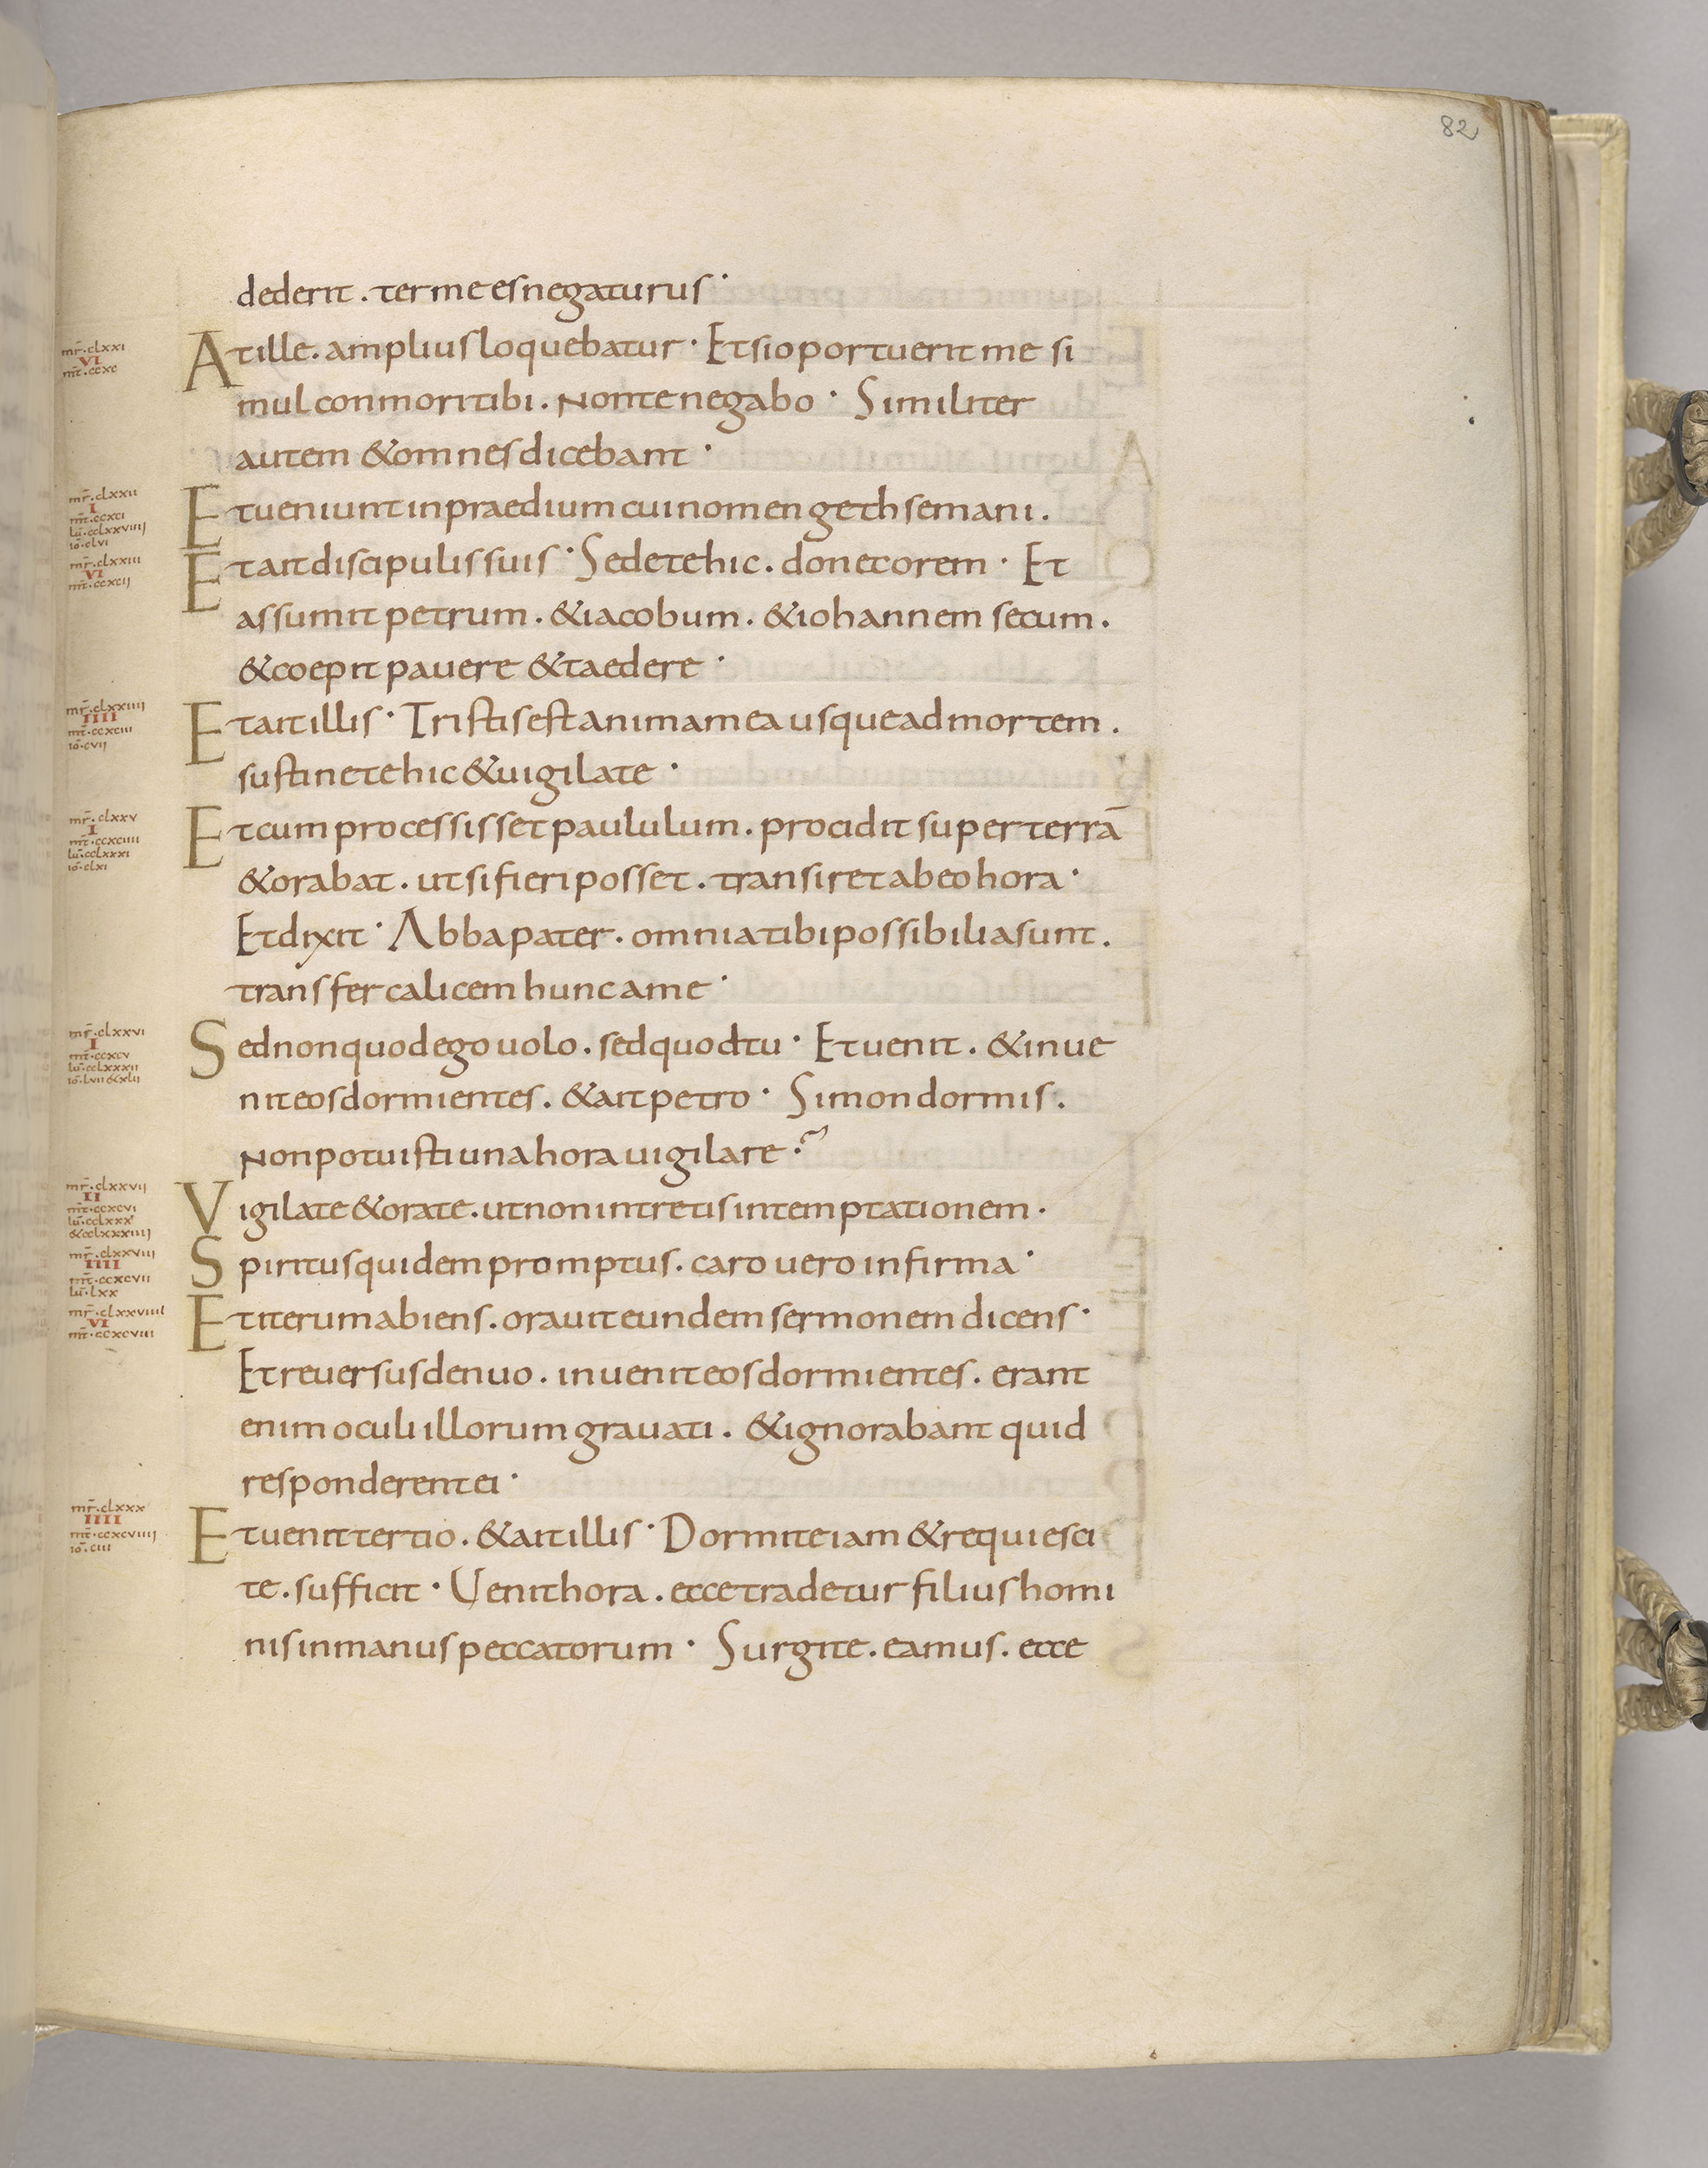 82
dederit . ter me es negaturus ·
mr̄ · clxxi
VI
mt̄ · ccxc
At ille . amplius loquebatur · Et si oportuerit me si
mul conmori tibi . Non te negabo · Similiter
autem & omnes dicebant ·
mr̄ · clxxii
I
mt̄ · ccxci
lū · cclxxviiii
iō · clvi
Et ueniunt in praedium cui nomen gethsemani .
mr̄ · clxxiii
VI
mt̄ · ccxcii
Et ait discipulis suis · Sedete hic . donec orem · Et
assumit petrum . & iacobum . & iohannem secum .
& coepit pauere & taedere ·
mr̄ · clxxiiii
IIII
mt̄ · ccxciii
iō · cvii
Et ait illis · Tristis est anima mea usque ad mortem .
sustinete hic & uigilate ·
mr̄ · clxxv
I
mt̄ · ccxciiii
lū · cclxxxi
iō · clxi
Et cum processisset paululum . procidit super terrā
& orabat . ut si fieri posset . transiret ab eo hora ·
Et dixit · Abba pater . omnia tibi possibilia sunt .
transfer calicem hunc a me ·
mr̄ · clxxvi
I
mt̄ · ccxcv
lū · cclxxxii
iō · lvii & xlii
Sed non quod ego uolo . sed quod tu · Et uenit . & inue
nit eos dormientes . & ait petro · Simon dormis .
Non potuisti una hora uigilare ·?
mr̄ · clxxvii
II
mt̄ · ccxcvi
lū · cclxxx
& cclxxxiiii
Vigilate & orate . ut non intretis in temptationem ·
mr̄ · clxxviii
IIII
mt̄ · ccxcvii
lū · lxx
Spiritus quidem promptus . caro uero infirma ·
mr̄ · clxxviiii
VI
mt̄ · ccxcviii
Et iterum abiens . orauit eundem sermonem dicens ·
Et reuersus denuo . inuenit eos dormientes . erant
enim oculi illorum grauati . & ignorabant quid
responderent ei ·
mr̄ · clxxx
IIII
mt̄ · ccxcviiii
iō · ciii
Et uenit tertio . & ait illis · Dormite iam & requiesci
te . sufficit · Uenit hora . ecce tradetur filius homi
nis in manus peccatorum · Surgite . eamus . ecce